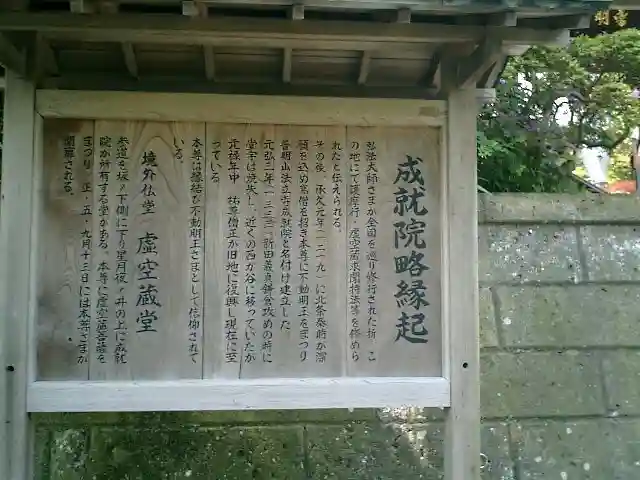 成就院略縁起
弘法大師さまが全国を巡り修行された折、こ
の地にて護摩行・虚空蔵求聞持法等を修めら
れたと伝えられる。
その後、承久元年(一二一九)に北条泰時が深
願を込め高僧を招き本尊に不動明王をまつり
普明山法立寺成就院と名付け建立した。
元弘三年(一三三三)新田義貞鎌倉攻めの時に
堂宇は焼失し、近くの西が谷に移っていたが
元禄年中 祐尊僧正が旧地に復興し現在に至
っている。
本尊は縁結び不動明王さまとして信仰されて
いる。
境外仏堂 虚空蔵堂
参道を坂ノ下側に下り星月夜ノ井の上に成就
院が所有する堂がある。本尊に虚空蔵菩薩を
まつり 正・五・九月十三日には本尊さまが
開扉される。